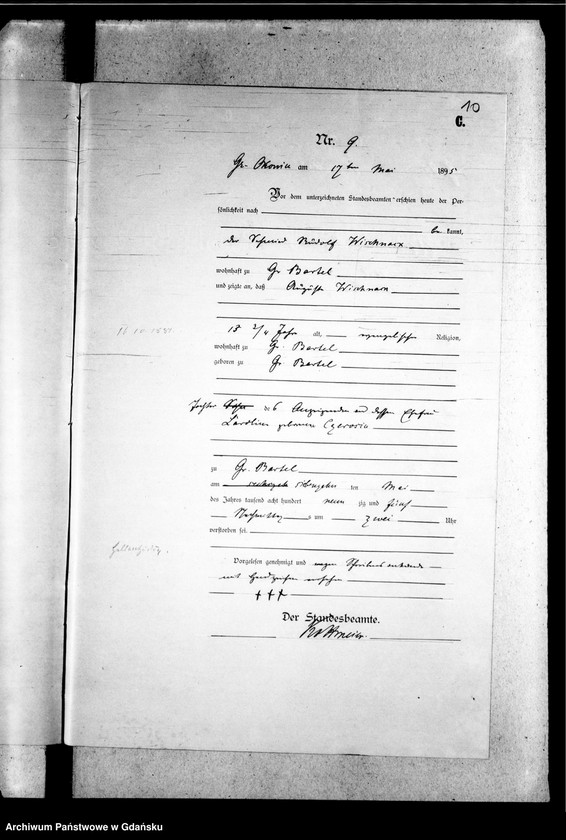 10
C.
Nr. 9.
am 17ten Mai 1895
Vor dem unterzeichneten Standesbeamten erschien heute der Per-
sönlichkeit nach
be kannt,
der Schmied Rudolf
wohnhaft zu Gr. Bartel
und zeigte an, daß Auguste
18 Jahre alt, evangelischer Religion,
wohnhaft zu Gr. Bartel
geboren zu Gr. Bartel
Tochter des Anzeigenden und dessen Ehefrau
geborenen
zu Gr. Bartel
am siebzehn ten Mai
des Jahres tausend acht hundert neun zig und fünf
Nachmittags um zwei Uhr
verstorben sei.
Vorgelesen genehmigt und wegen
mit Handzeichen versehen
† † †
Der Standesbeamte.
Archiwum Państwowe w Gdańsku